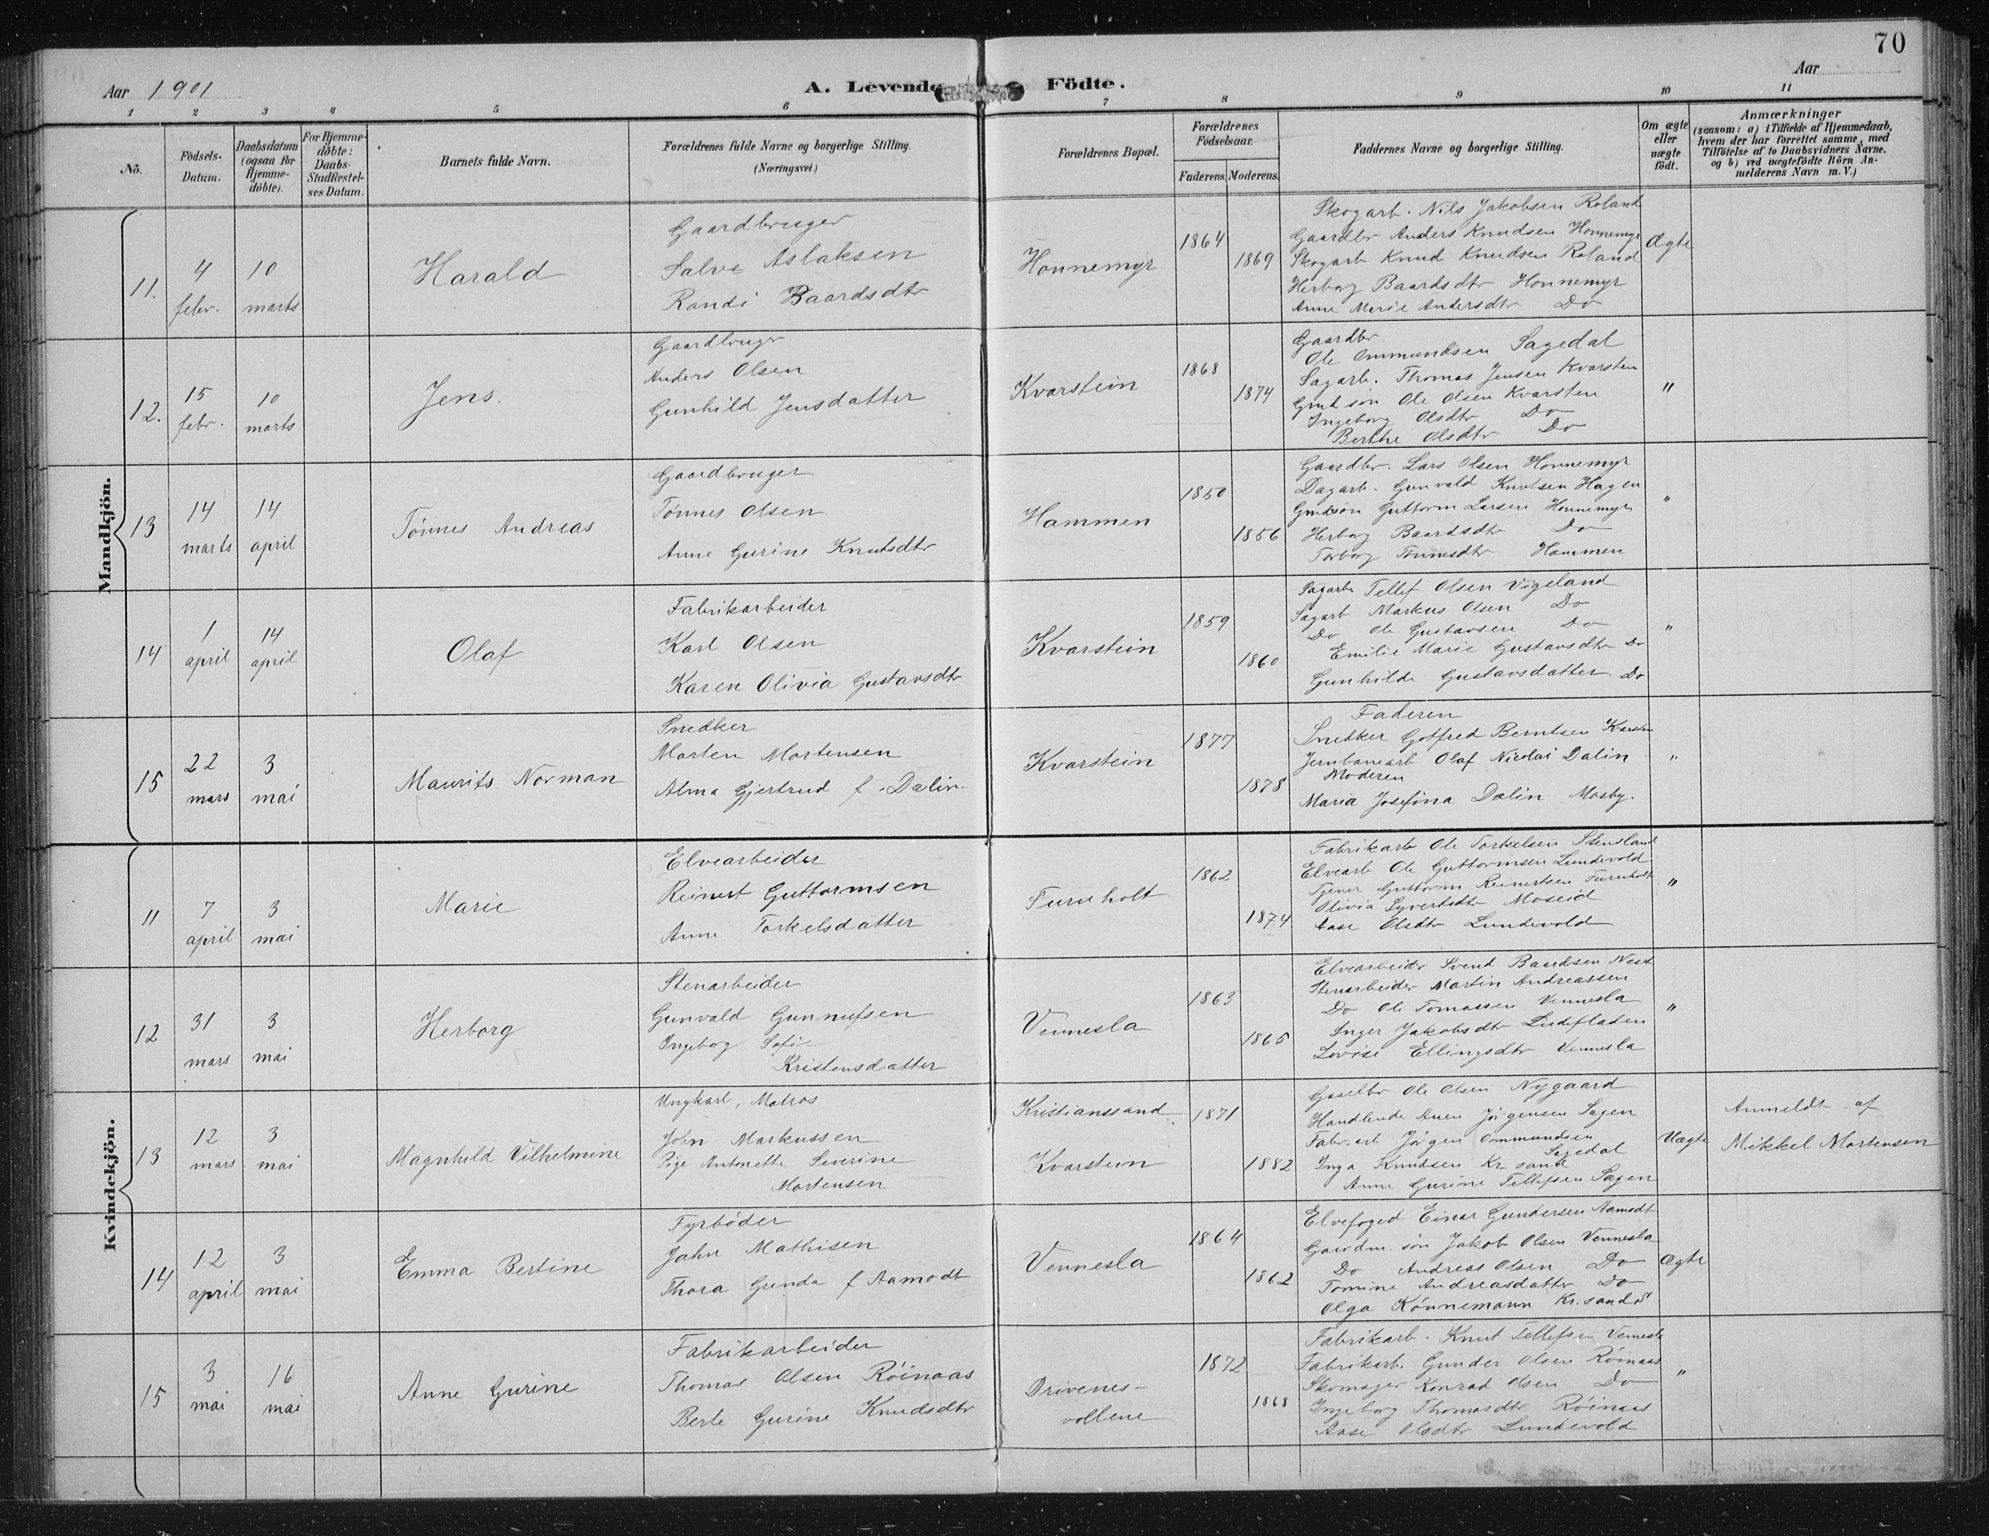 70
Aar 1901
A. Levende Födte.
Aar
1 2 3 4 5 6 7 8 9 10 11
No.
Födsels-Datum.
Daabsdatum (ogsaa for Hjemme-döbte).
For Hjemme-döbte: Daabs-Stadfæstel-ses Datum.
Barnets fulde Navn.
Forældrenes fulde Navne og borgerlige Stilling.
(Næringsvei.)
Forældrenes Bopæl.
Forældrenes Födselsaar.
Faderens. Moderens.
Faddernes Navne og borgerlige Stilling.
Om ægte eller uægte födt.
Anmærkninger
(saasom: a) i Tilfælde af Hjemmedaab,
hvem der har forrettet samme, med
Tilföielse af to Daabsvidners Navne,
og b) ved uægtefödte Börn An-
melderens Navn m. V.)
Mandkjön.
11.
4 febr.
10 marts
Harald
Gaardbruger
Salve Aslaksen
Randi Baardsdtr
Honnemyr
1864
1869
Skogarb. Nils Jakobsen Roland
Gaardbr Anders Knudsen Honnemyr
Skogarb Knud Knudsen Roland
Herborg Baardsdtr Honnemyr
Anne Marie Andersdtr Do
Ægte
12.
15 febr.
10 marts
Jens.
Gaardbruger
Anders Olsen
Gunhild Jensdatter
Kvarstein
1868
1874
Gaardbr
Ole Ommundsen Sagedal
Sagarb. Thomas Jensen Kvarsten
Gmksön Ole Olsen Kvarsten
Ingeborg Olsdtr Do
Berthe Olsdtr Do
"
13
14 marts
14 april
Tønnes Andreas
Gaardbruger
Tønnes Olsen
Anne Gurine Knutsdtr
Hammen
1850
1856
Gaardbr. Lars Olsen Honnemyr
Dagarb. Gunvald Knutsen Hagen
Gmksön Guttorm Larsen Honnemyr
Herborg Baardsdtr Do
Torborg Tønnesdtr Hammen
"
14
1 april
14 april
Olaf
Fabrikarbeider
Karl Olsen
Karen Olivia Gustavsdtr
Kvarstein
1859
1860
Sagarb Tellef Olsen Vigeland
Sagarb Markus Olsen Do
Do Ole Gustavsen Do
Emilie Marie Gustavsdtr Do
Gunhilde Gustavsdatter Do
"
15
22 mars
3 mai
Maurits Norman
Snedker
Morten Mortensen
Alma Gjertrud f. Dalin.
Kvarstein
1877
1878
Faderen
Snedker Gotfred Berntsen
Jernbanearb Olaf Nicolai Dalin
Moderen
Maria Josefina Dalin Mosby.
"
Kvindekjön.
11
7 april
3 mai
Marie
Elvearbeider
Reinert Guttormsen
Anne Torkelsdatter
Furuholt
1862
1874
Fabrikarb Ole Torkelsen Stensland
Elvearb Ole Guttormsen Lundevold
Tjener Guttorm Reinertsen Furuholt
Olivia Syvertsdtr Moseid
Aase Olsdtr Lundevold
"
12
31 mars
3 mai
Herborg
Stenarbeider
Gunvald Gunnufsen
Ingeborg Sofie
Kristensdatter
Vennesla
1863
1865
Elvearbeider Svend Baardsen
Stenarbeider Martin Andreassen
Do Ole Tomassen Vennesla
Inger Jakobsdtr
Lovise Ellingsdtr Vennesla
"
13
12 mars
3 mai
Magnhild Vilhelmine
Ungkarl, Matros
John Markussen
Pige Antonette Severine
Mortensen
Kristianssand
Kvarstein
1871
1882
Ole Olsen Nygaard
Handlende Aanen Jørgensen Sagen
Fabr.arb Jørgen Ommundsen
Sagedal
Inga Knudsen Kr. sand
Anne Gurine Tellefsen Sagen
Uægte
Anmeldt af
Mikkel Mortensen
14
12 april
3 mai
Emma Bertine
Fyrbøder
Jahn Mathisen
Thora Gunda f. Aamodt
Vennesla
1864
1862
Elvefoged Einar Gundersen Aamodt
Gaardm. søn Jakob Olsen Vennesla
Do Andreas Olsen Do
Tomine Andreasdatter Do
Olga Kønnemann Kr. sand
Ægte
15
3 mai
16 mai
Anne Gurine
Fabrikarbeider
Thomas Olsen Röinaas
Berte Gurine Knudsdtr
Drivenes-
voltene
1872
1868
Fabrikarb. Knut Tellefsen Vennesla
Fabrikarb. Gunder Olsen Röinaas
Skomager Konrad Olsen Do
Ingeborg Thomasdtr Röinaas
Aase Olsdtr Lundevold
"